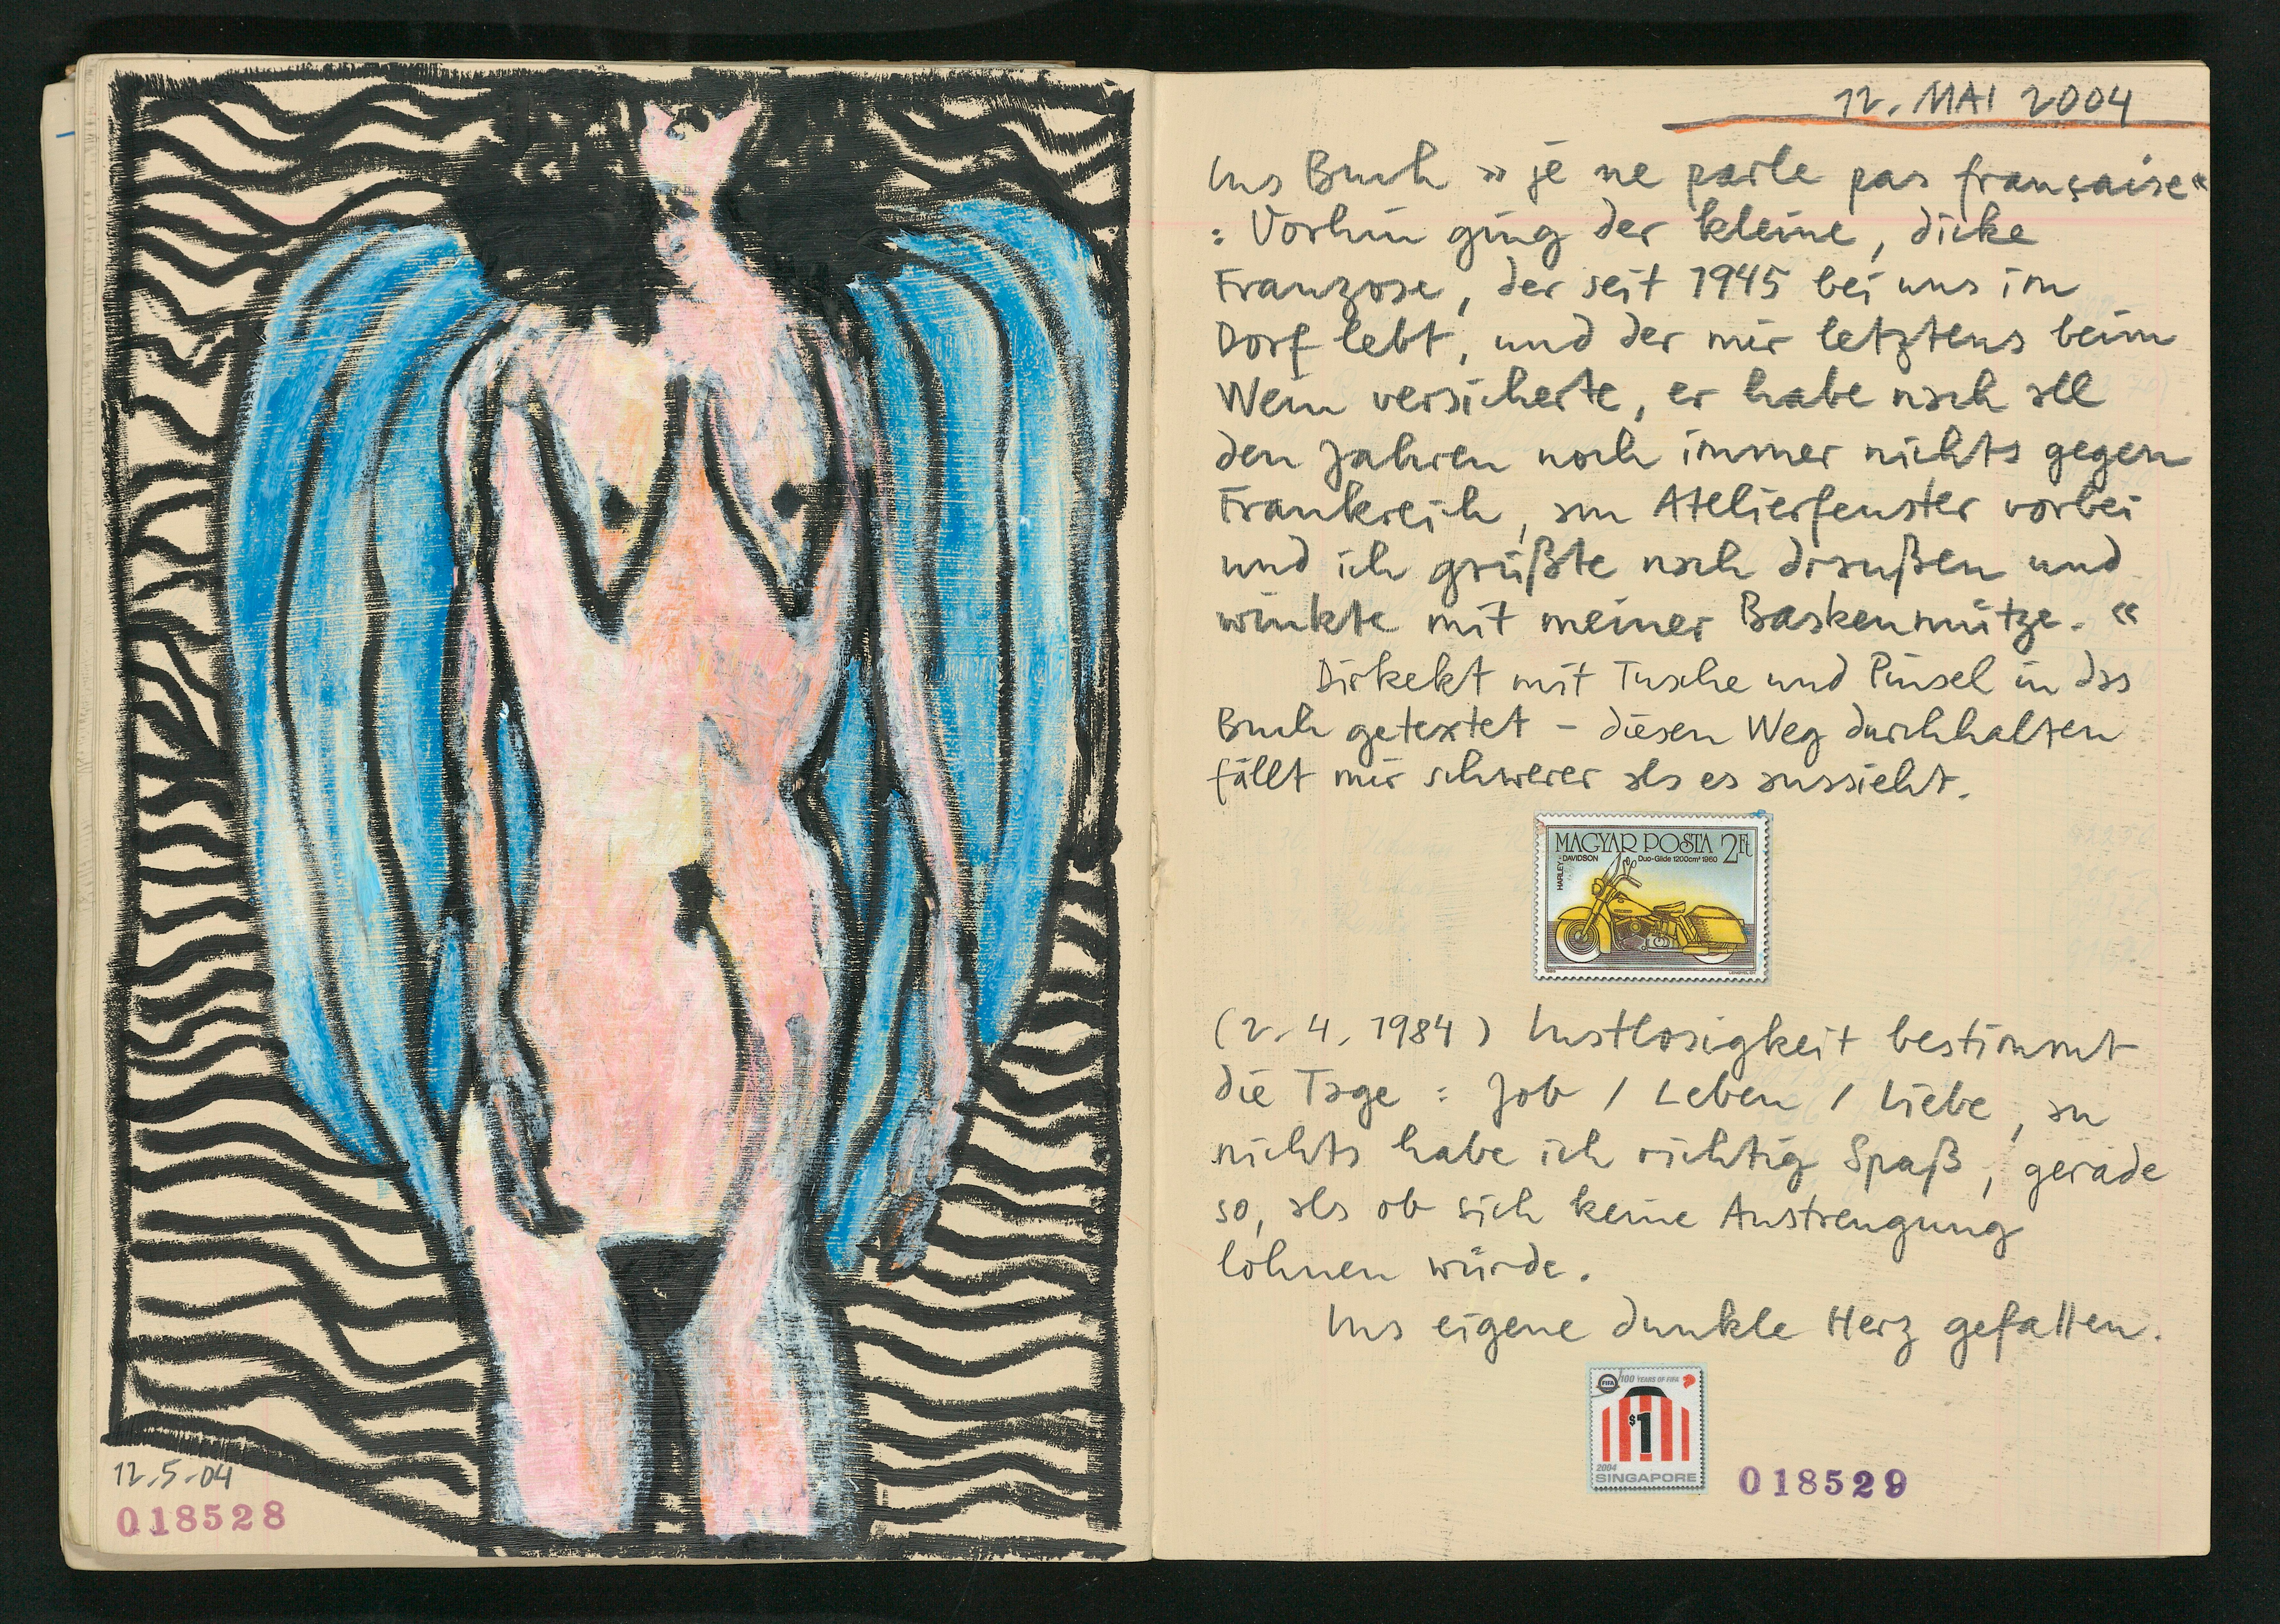 12.5.04
018528
12. MAI 2004
Ins Buch »je ne parle pas française«
: Vorhin ging der kleine, dicke
Franzose, der seit 1945 bei uns im
Dorf lebt, und der mir letztens beim
Wein versicherte, er habe nach all
den Jahren noch immer nichts gegen
Frankreich, am Atelierfenster vorbei
und ich grüßte nach draußen und
winkte mit meiner Baskenmütze. «
Dirkekt mit Tusche und Pinsel in das
Buch getextet – diesen Weg durchhalten
fällt mir schwerer als es aussieht.
MAGYAR POSTA 2Ft
HARLEY-DAVIDSON
Duo-Glide 1200cm³ 1960
(2.4.1984) Lustlosigkeit bestimmt
die Tage : Job / Leben / Liebe, an
nichts habe ich richtig Spaß, gerade
so, als ob sich keine Anstrengung
lohnen würde.
Ins eigene dunkle Herz gefallen.
FIFA
100 YEARS OF FIFA
$1
2004
SINGAPORE
018529